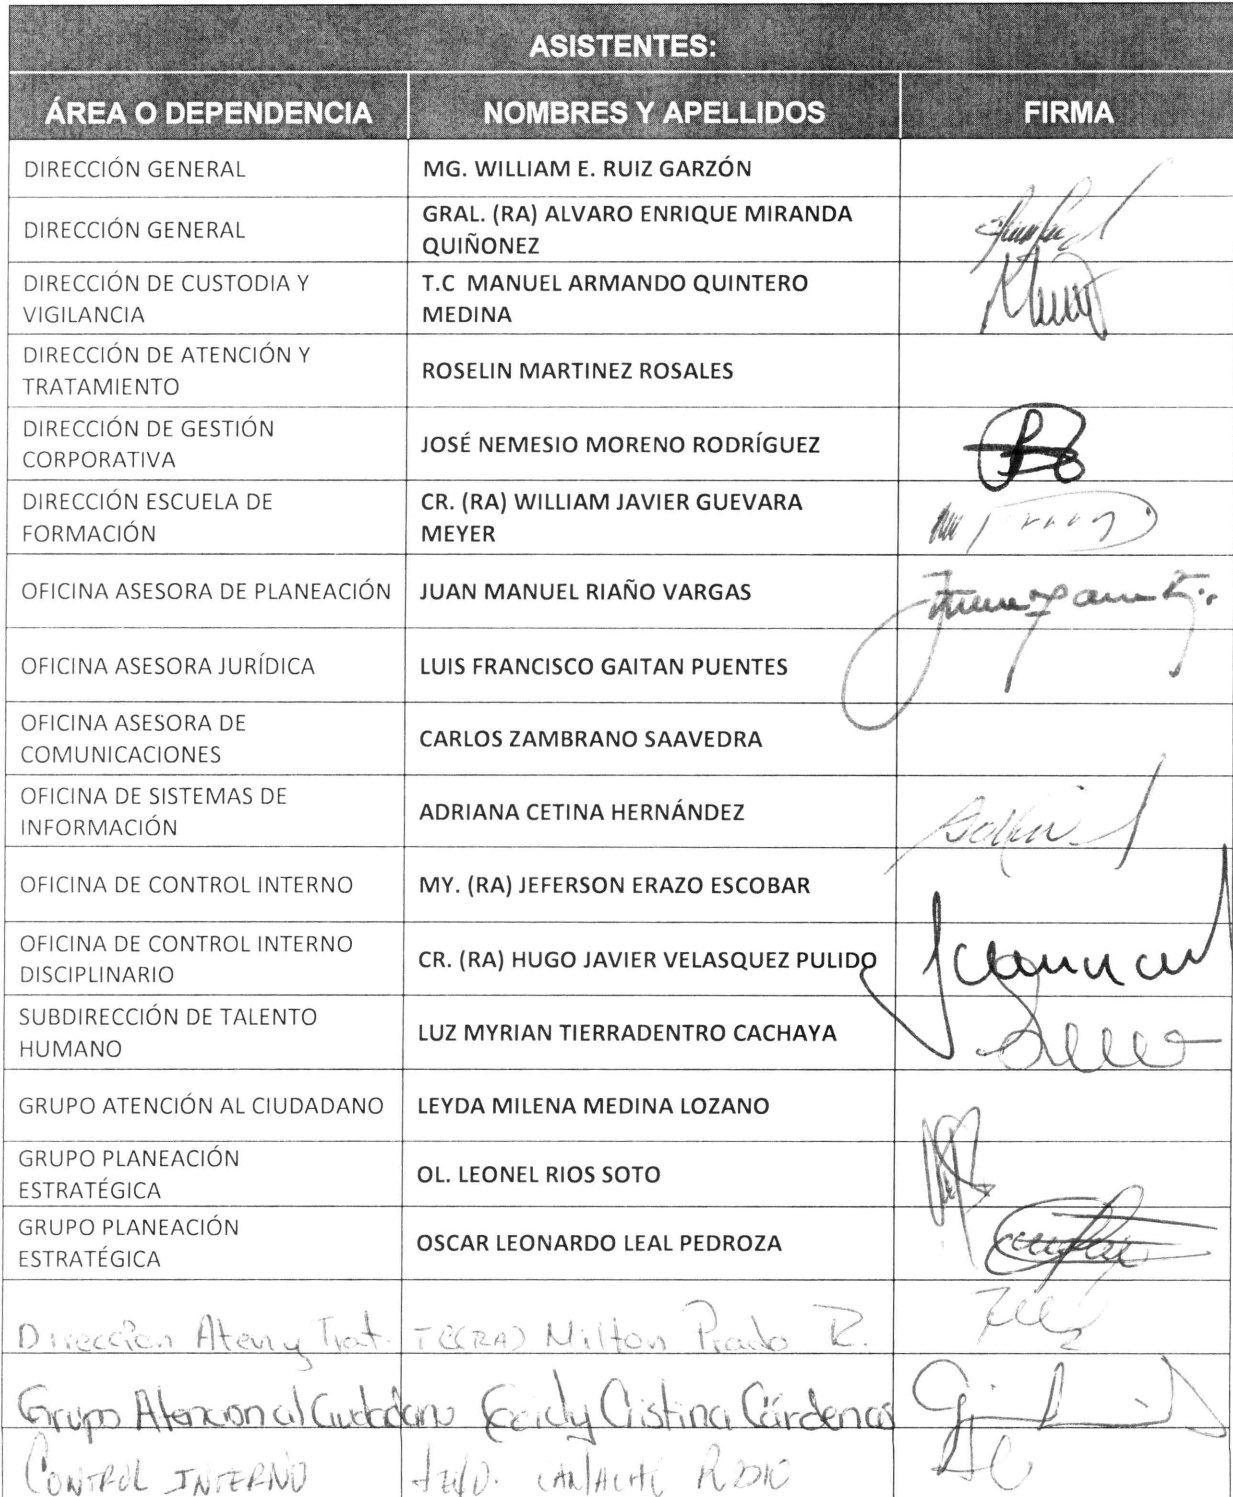 ASISTENTES:
ÁREA O DEPENDENCIA NOMBRES Y APELLIDOS FIRMA
DIRECCIÓN GENERAL MG. WILLIAM E. RUIZ GARZÓN
DIRECCIÓN GENERAL GRAL. (RA) ALVARO ENRIQUE MIRANDA
QUIÑONEZ
DIRECCIÓN DE CUSTODIA Y
VIGILANCIA
T.C MANUEL ARMANDO QUINTERO
MEDINA
DIRECCIÓN DE ATENCIÓN Y
TRATAMIENTO
ROSELIN MARTINEZ ROSALES
DIRECCIÓN DE GESTIÓN
CORPORATIVA
JOSÉ NEMESIO MORENO RODRÍGUEZ
DIRECCIÓN ESCUELA DE
FORMACIÓN
CR. (RA) WILLIAM JAVIER GUEVARA
MEYER
OFICINA ASESORA DE PLANEACIÓN JUAN MANUEL RIAÑO VARGAS
OFICINA ASESORA JURÍDICA LUIS FRANCISCO GAITAN PUENTES
OFICINA ASESORA DE
COMUNICACIONES
CARLOS ZAMBRANO SAAVEDRA
OFICINA DE SISTEMAS DE
INFORMACIÓN
ADRIANA CETINA HERNÁNDEZ
OFICINA DE CONTROL INTERNO MY. (RA) JEFERSON ERAZO ESCOBAR
OFICINA DE CONTROL INTERNO
DISCIPLINARIO
CR. (RA) HUGO JAVIER VELASQUEZ PULIDO
SUBDIRECCIÓN DE TALENTO
HUMANO
LUZ MYRIAN TIERRADENTRO CACHAYA
GRUPO ATENCIÓN AL CIUDADANO LEYDA MILENA MEDINA LOZANO
GRUPO PLANEACIÓN
ESTRATÉGICA
OL. LEONEL RIOS SOTO
GRUPO PLANEACIÓN
ESTRATÉGICA
OSCAR LEONARDO LEAL PEDROZA
Dirección Aten y Trat. TC(RA) Milton Prado R.
Grupo Atencion al Ciudadano Cristina Cárdenas
CONTROL INTERNO